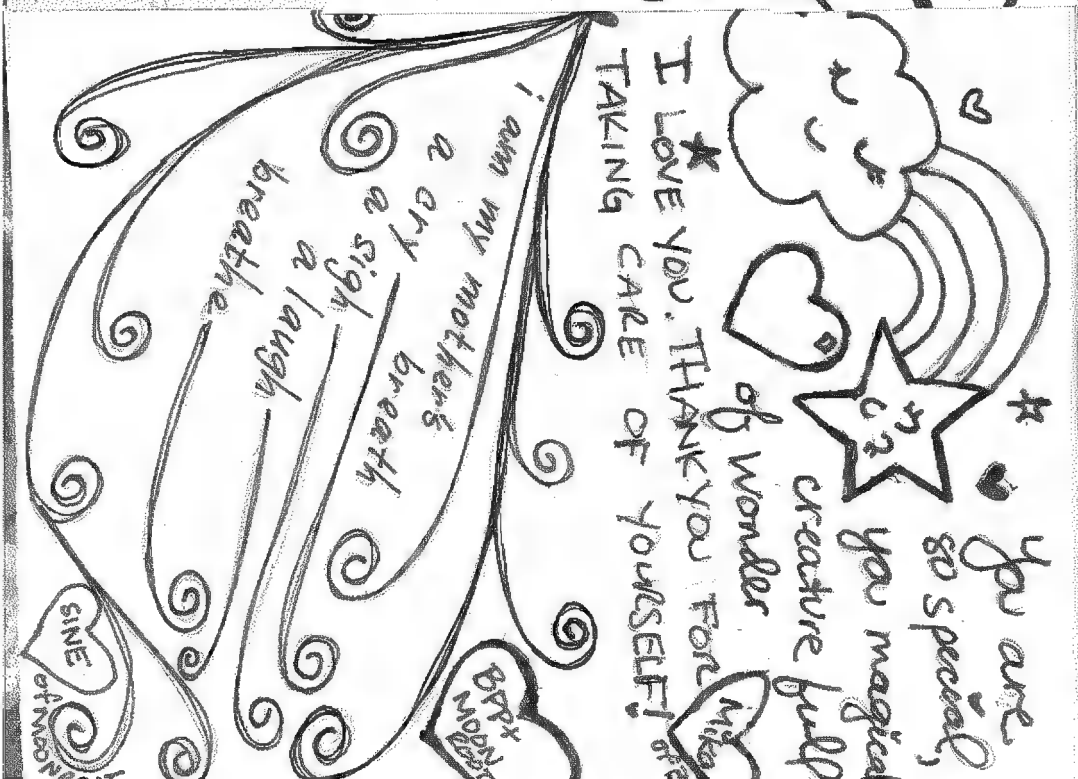 you are
so special,
you magical
creature full
of wonder
I LOVE YOU. THANK YOU FOR
TAKING CARE OF YOURSELF!
Mika
i am my mothers
breath
a cry
a sigh
a laugh
breathe
SINE
of MOON